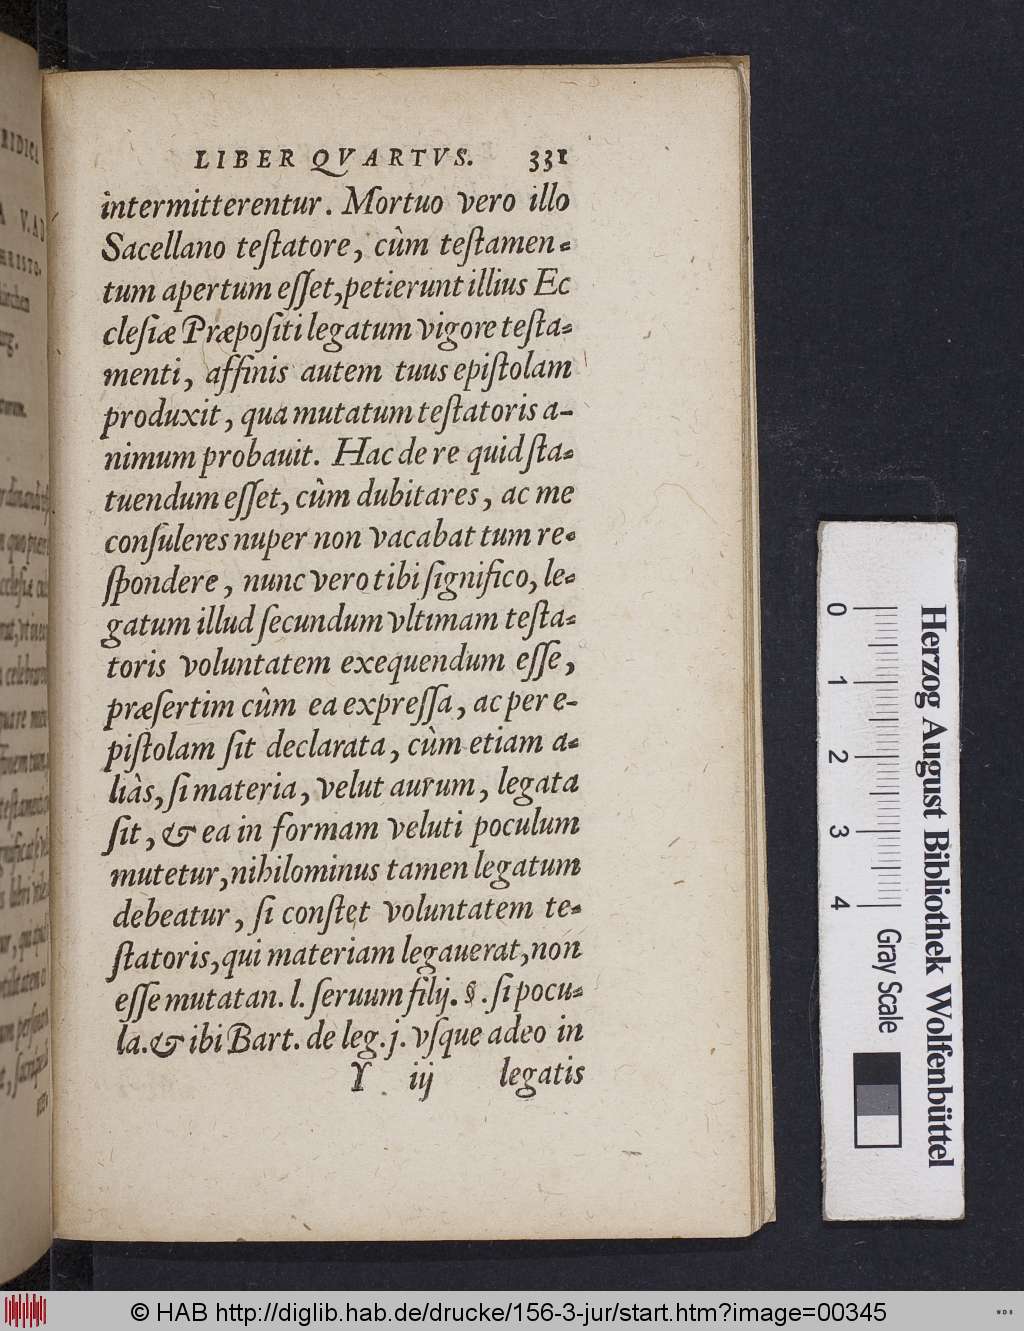 LIBER QVARTVS. 331
intermitterentur. Mortuo vero illo
Sacellano teſtatore, cûm teſtamen-
tum apertum eſſet, petierunt illius Ec
cleſiæ Præpoſiti legatum vigore teſta-
menti, affinis autem tuus epiſtolam
produxit, qua mutatum teſtatoris a-
nimum probauit. Hac de re quid ſta-
tuendum eſſet, cûm dubitares, ac me
conſuleres nuper non vacabat tum re-
ſpondere, nunc vero tibi ſignifico, le-
gatum illud ſecundum vltimam teſta-
toris voluntatem exequendum eſſe,
præſertim cûm ea expreſſa, ac per e-
piſtolam ſit declarata, cùm etiam a-
liàs, ſi materia, velut aurum, legata
ſit, & ea in formam veluti poculum
mutetur, nihilominus tamen legatum
debeatur, ſi conſtet voluntatem te-
ſtatoris, qui materiam legauerat, non
eſſe mutatan. l. ſeruum filij. §. ſi pocu-
la. & ibi Bart. de leg. j. vſque adeo in
Y iij legatis
Herzog August Bibliothek Wolfenbüttel
0 1 2 3 4 Gray Scale
© HAB http://diglib.hab.de/drucke/156-3-jur/start.htm?image=00345